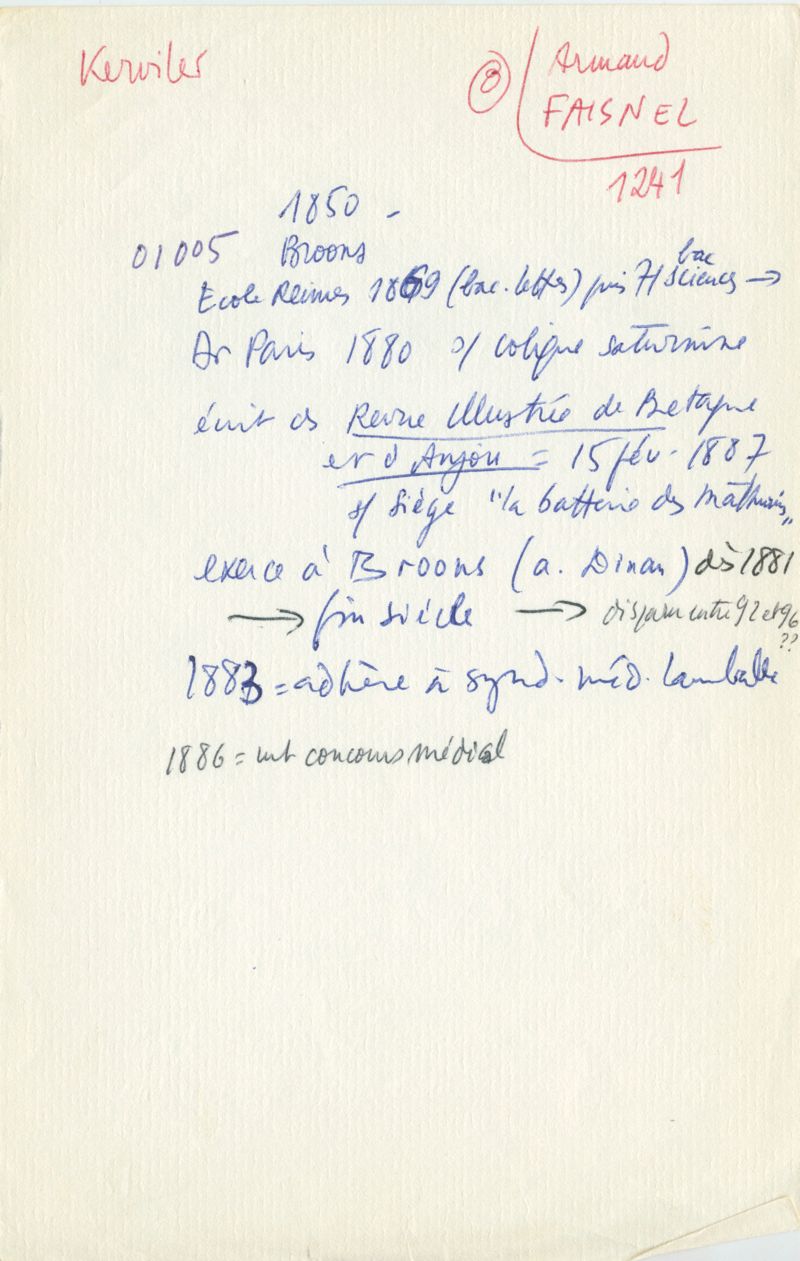 Kerviler
8 Armand
FAISNEL
1241
1850 -
01005 Broons
Ecole Reimes 1869 (bac. lettres) puis 71 bac Sciences →
Dr Paris 1880 s/ colique saturnine
écrit ds Revue Illustrée de Bretagne
et d'Anjou = 15 fév. 1887
s/ siège "la batterie des Mathurins"
exerce à Broons (a. Dinan) dès 1881
→ fin siècle → disparu entre 92 et 96
??
1883 = adhère à synd. méd. Lamballe
1886 = concours médical